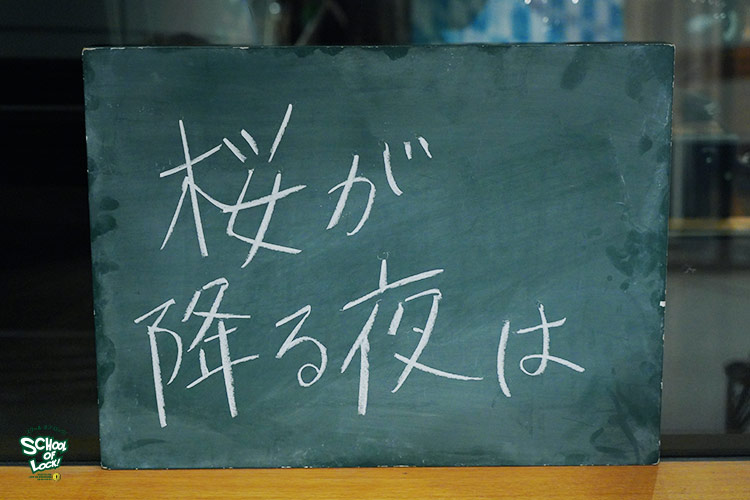 桜が
降る夜は
SCHOOL
OF
LOCK!